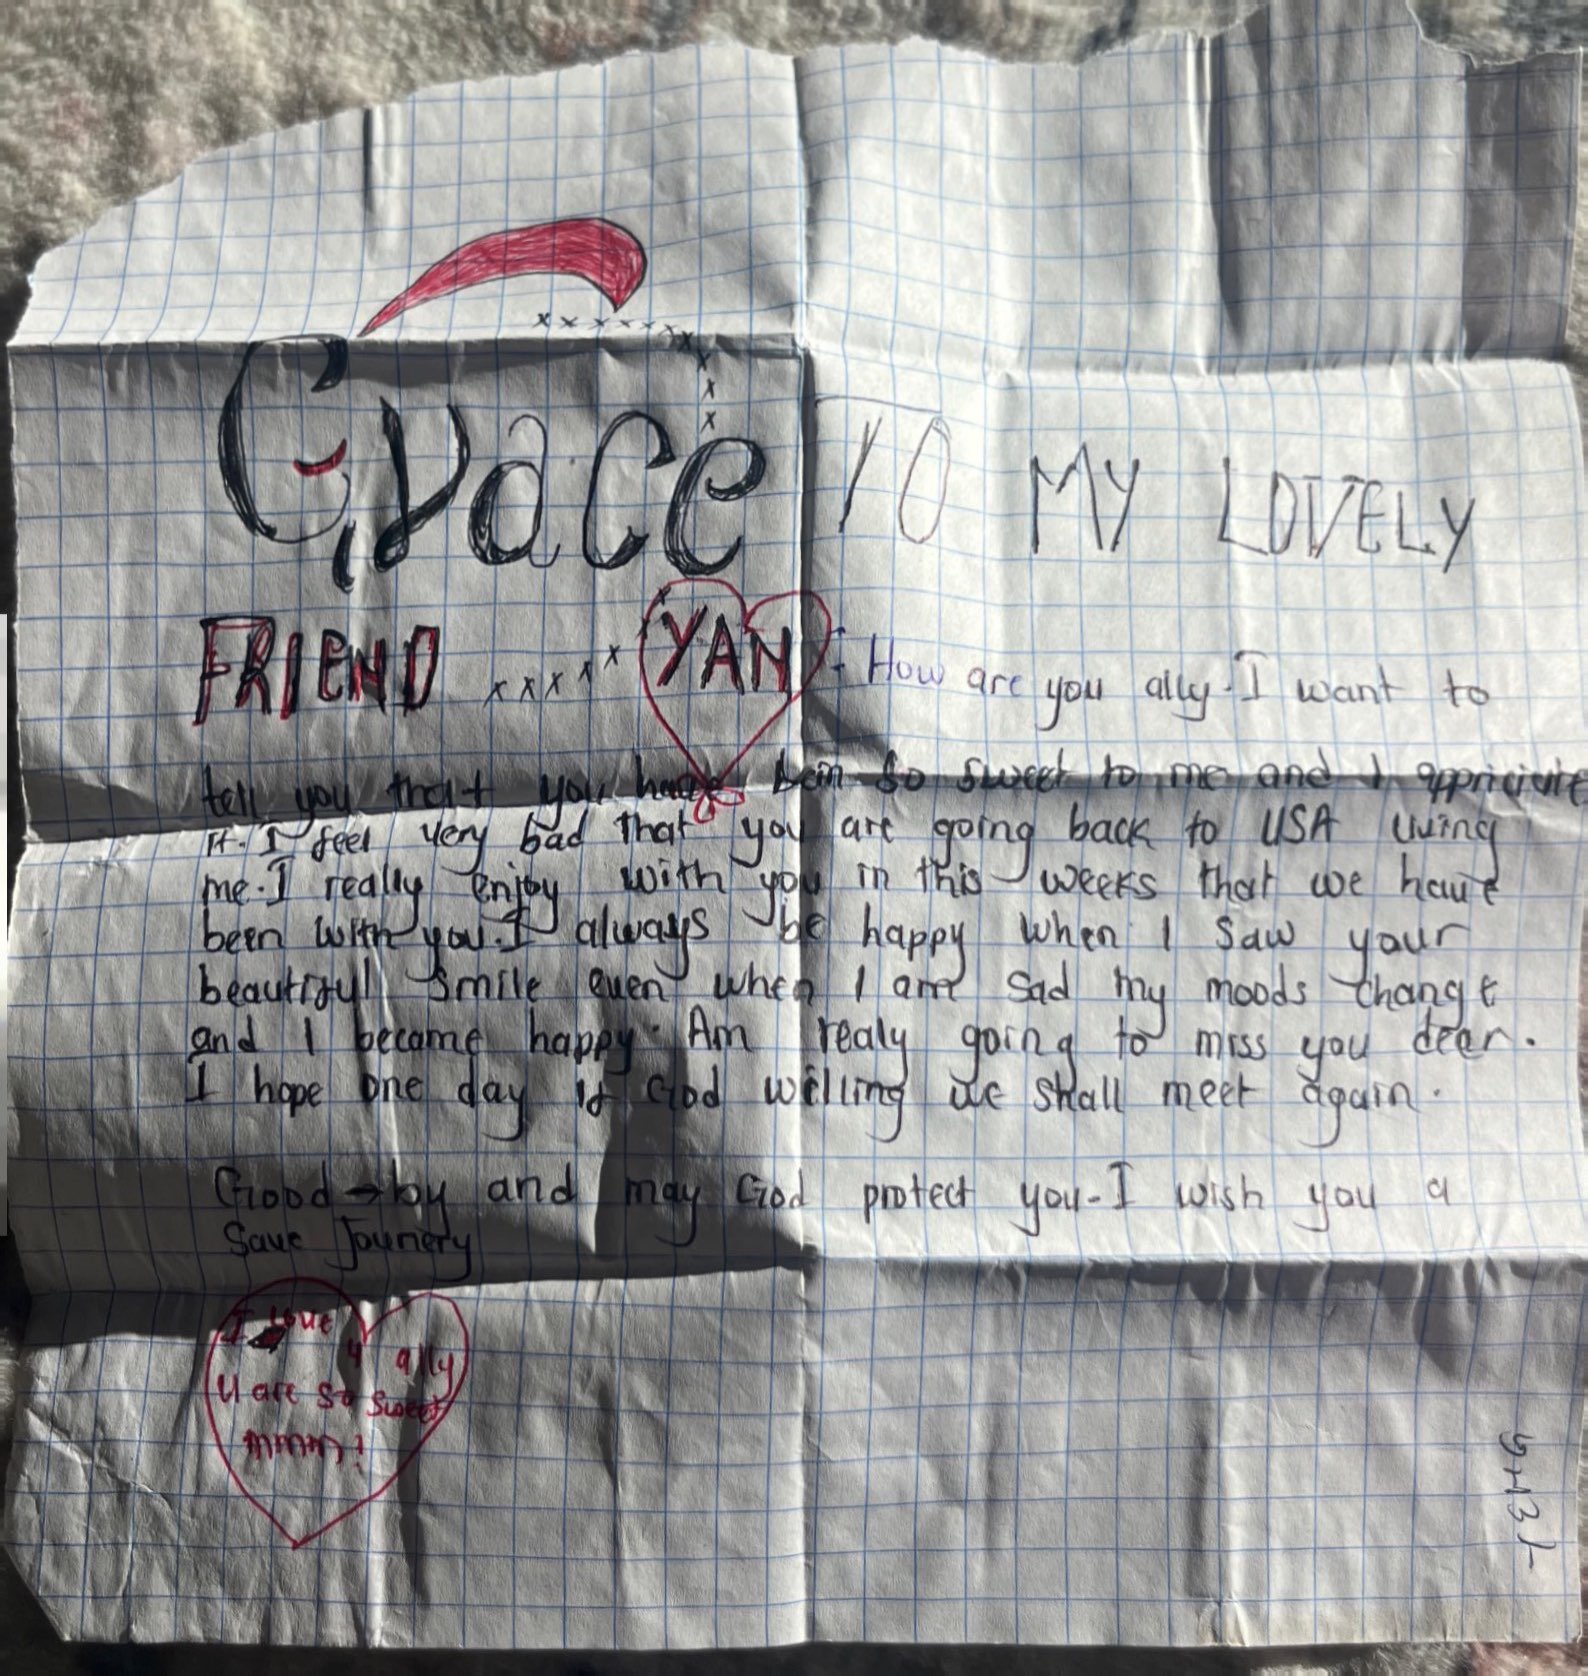 Grace TO MY LOVELY
FRIEND xxxxxx YAN :- How are you ally. I want to
tell you that you have bein so sweet to me and I appriciate
it. I feel very bad that you are going back to USA living
me. I really enjoy with you in this weeks that we have
been with you. I always be happy when I saw your
beautiful smile even when I am sad my moods change
and I became happy. Am realy going to miss you dear.
I hope one day if God willing we shall meet again.
Good → by and may God protect you - I wish you a
Save Jounery
I love
4 ally
U are so sweet
mmm!